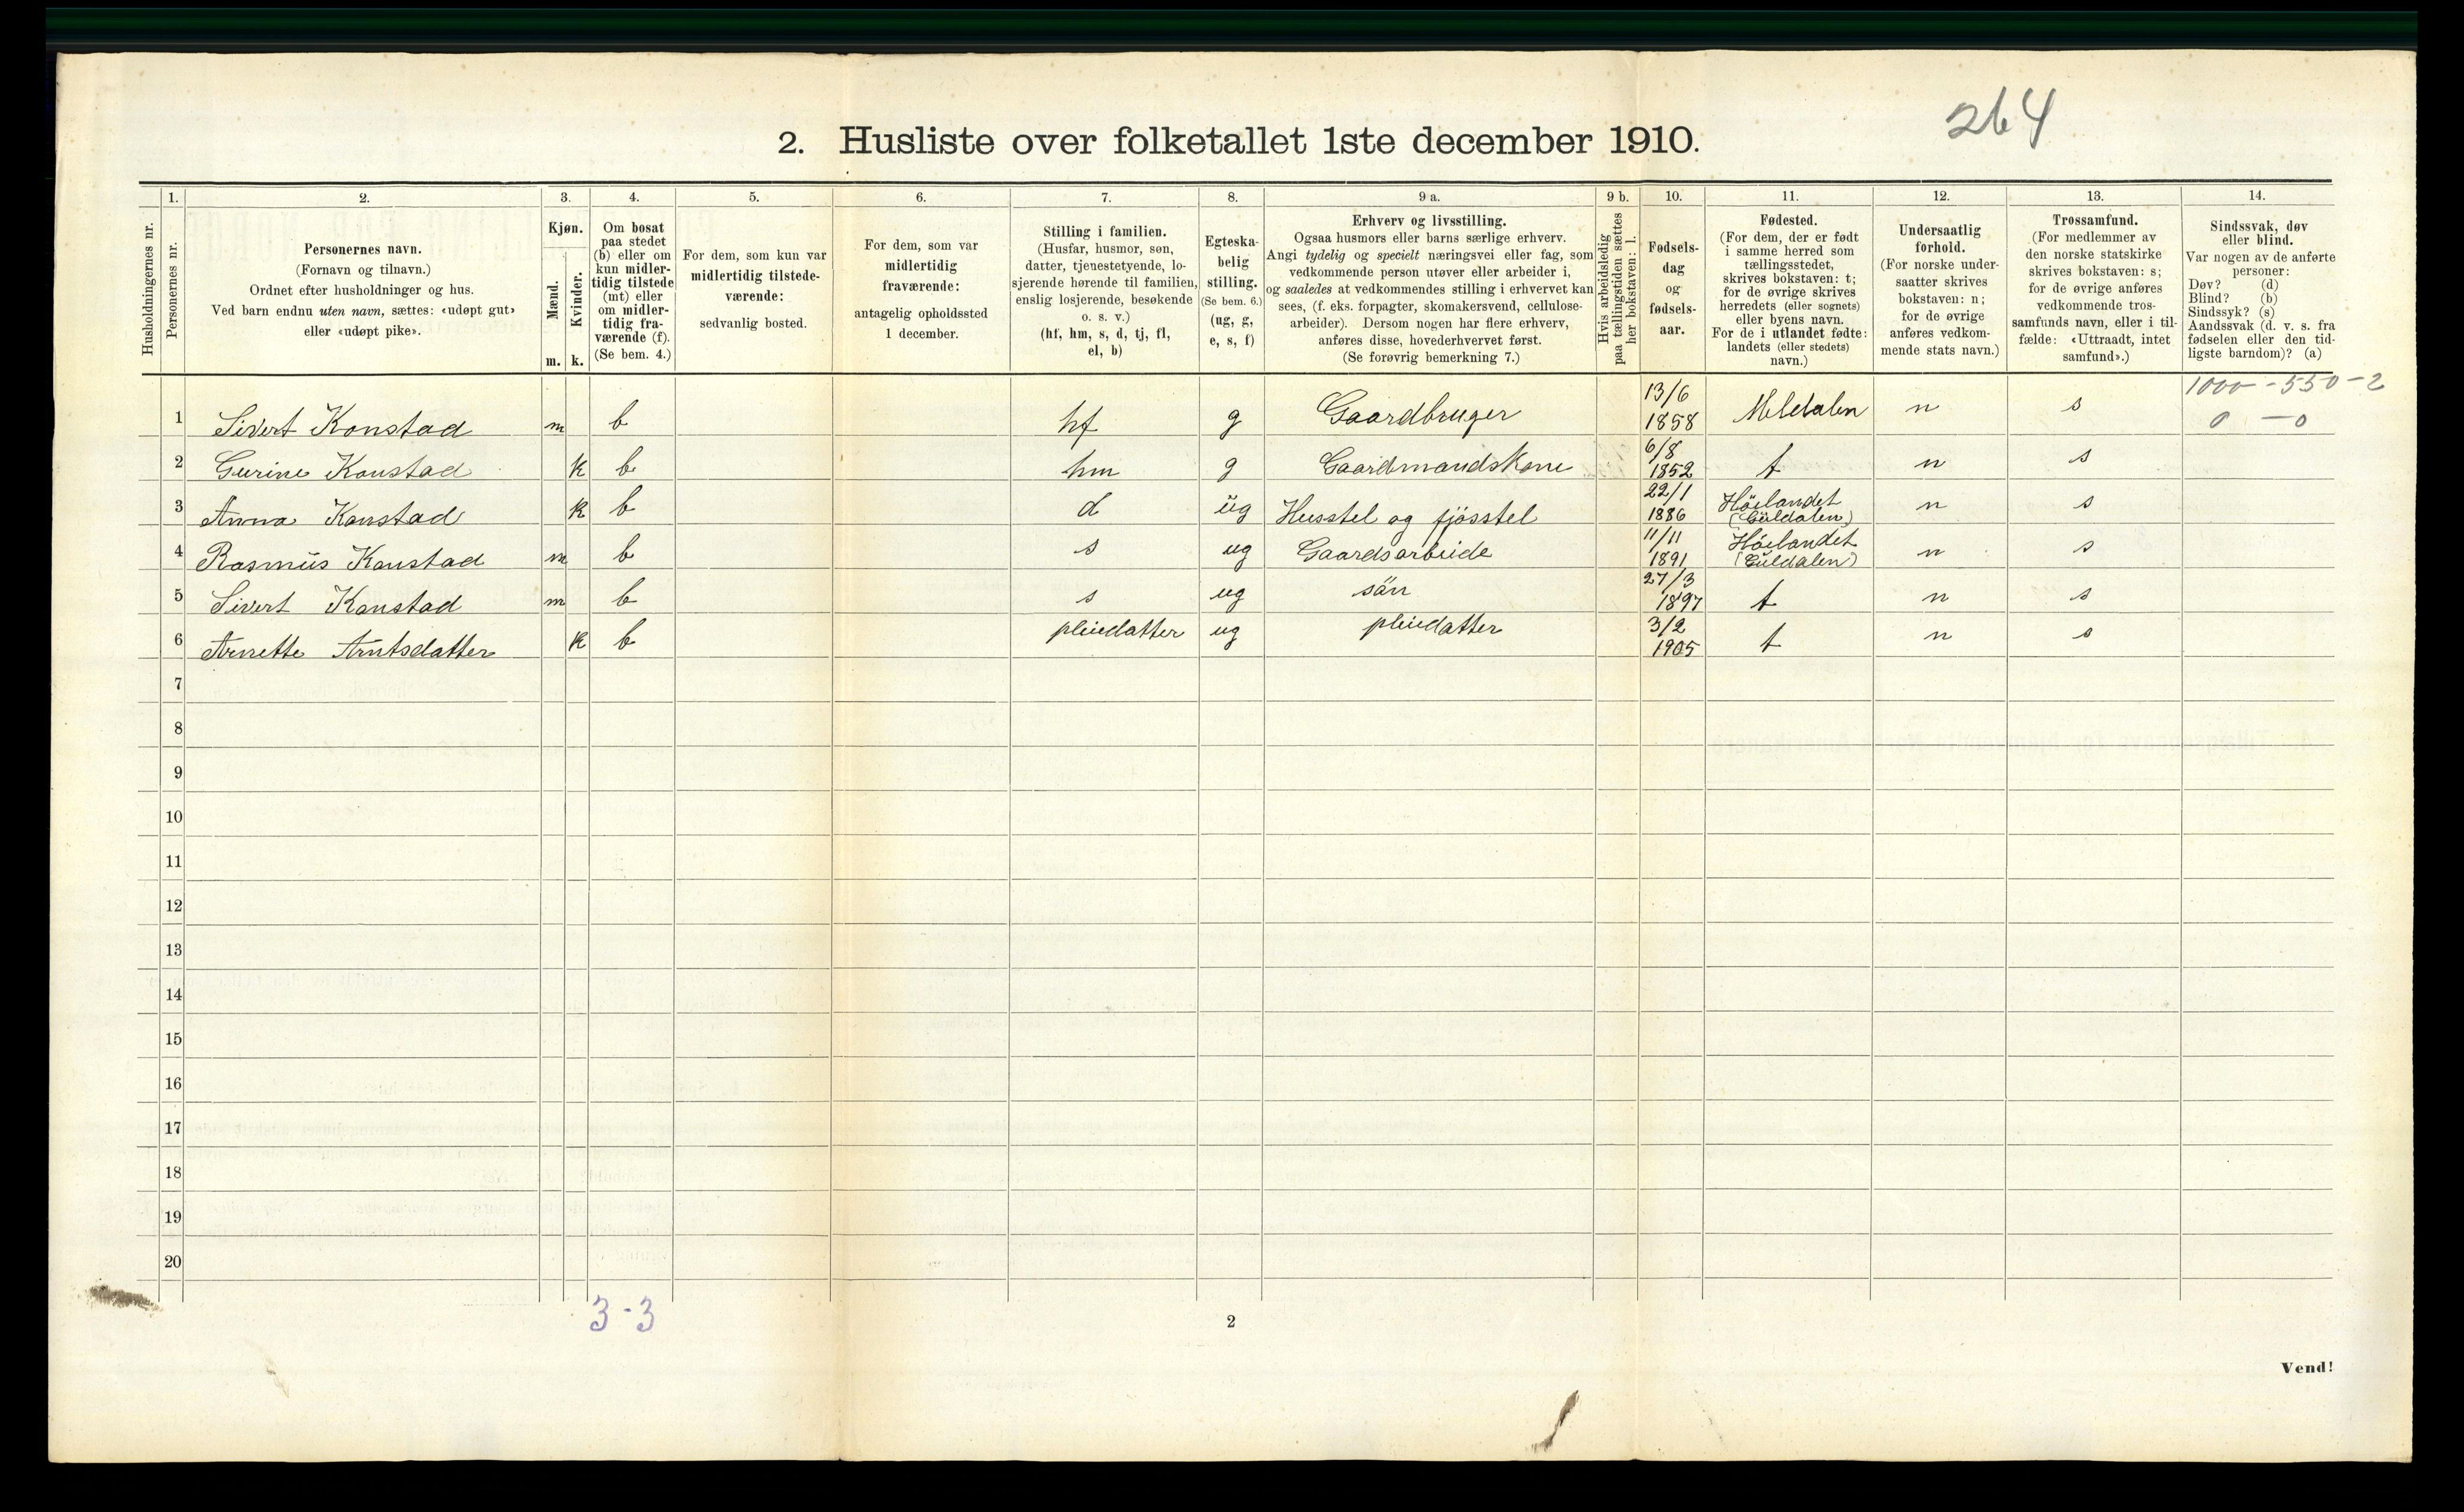 264
2. Husliste over folketallet 1ste december 1910.
1. 2. 3. 4. 5. 6. 7. 8. 9 a. 9 b. 10. 11. 12. 13. 14.
Husholdningernes nr.
Personernes nr.
Personernes navn.
(Fornavn og tilnavn.)
Ordnet efter husholdninger og hus.
Ved barn endnu uten navn, sættes: «udøpt gut»
eller «udøpt pike».
Kjøn.
Mænd.
m.
Kvinder.
k.
Om bosat
paa stedet
(b) eller om
kun midler-
tidig tilstede
(mt) eller
om midler-
tidig fra-
værende (f).
(Se bem. 4.)
For dem, som kun var
midlertidig tilstede-
værende:
sedvanlig bosted.
For dem, som var
midlertidig
fraværende:
antagelig opholdssted
1 december.
Stilling i familien.
(Husfar, husmor, søn,
datter, tjenestetyende, lo-
sjerende hørende til familien,
enslig losjerende, besøkende
o. s. v.)
(hf, hm, s, d, tj, fl,
el, b)
Egteska-
belig
stilling.
(Se bem. 6.)
(ug, g,
e, s, f)
Erhverv og livsstilling.
Ogsaa husmors eller barns særlige erhverv.
Angi tydelig og specielt næringsvei eller fag, som
vedkommende person utøver eller arbeider i,
og saaledes at vedkommendes stilling i erhvervet kan
sees, (f. eks. forpagter, skomakersvend, cellulose-
arbeider). Dersom nogen har flere erhverv,
anføres disse, hovederhvervet først.
(Se forøvrig bemerkning 7.)
Hvis arbeidsledig
paa tællingstiden sættes
her bokstaven: l.
Fødsels-
dag
og
fødsels-
aar.
Fødested.
(For dem, der er født
i samme herred som
tællingsstedet,
skrives bokstaven: t;
for de øvrige skrives
herredets (eller sognets)
eller byens navn.
For de i utlandet fødte:
landets (eller stedets)
navn.)
Undersaatlig
forhold.
(For norske under-
saatter skrives
bokstaven: n;
for de øvrige
anføres vedkom-
mende stats navn.)
Trossamfund.
(For medlemmer av
den norske statskirke
skrives bokstaven: s;
for de øvrige anføres
vedkommende tros-
samfunds navn, eller i til-
fælde: «Uttraadt, intet
samfund».)
Sindssvak, døv
eller blind.
Var nogen av de anførte
personer:
Døv? (d)
Blind? (b)
Sindssyk? (s)
Aandssvak (d. v. s. fra
fødselen eller den tid-
ligste barndom)? (a)
1000 - 550 - 2
0 - 0
1 Sivert Konstad m b hf g Gaardbruger 13/6 1858 Meldalen n s
2 Gurine Konstad k b hm g Gaardmandskone 6/8 1852 t n s
3 Anna Konstad k b d ug Husstel og fjøsstel 22/1 1886 Höilandet (Guldalen) n s
4 Rasmus Konstad m b s ug Gaardsarbeide 11/11 1891 Höilandet (Guldalen) n s
5 Sivert Konstad m b s ug sön 27/3 1897 t n s
6 Arnette Arntsdatter k b pleiedatter ug pleiedatter 3/2 1905 t n s
7
8
9
10
11
12
13
14
15
16
17
18
19
20
3 - 3
2
Vend!